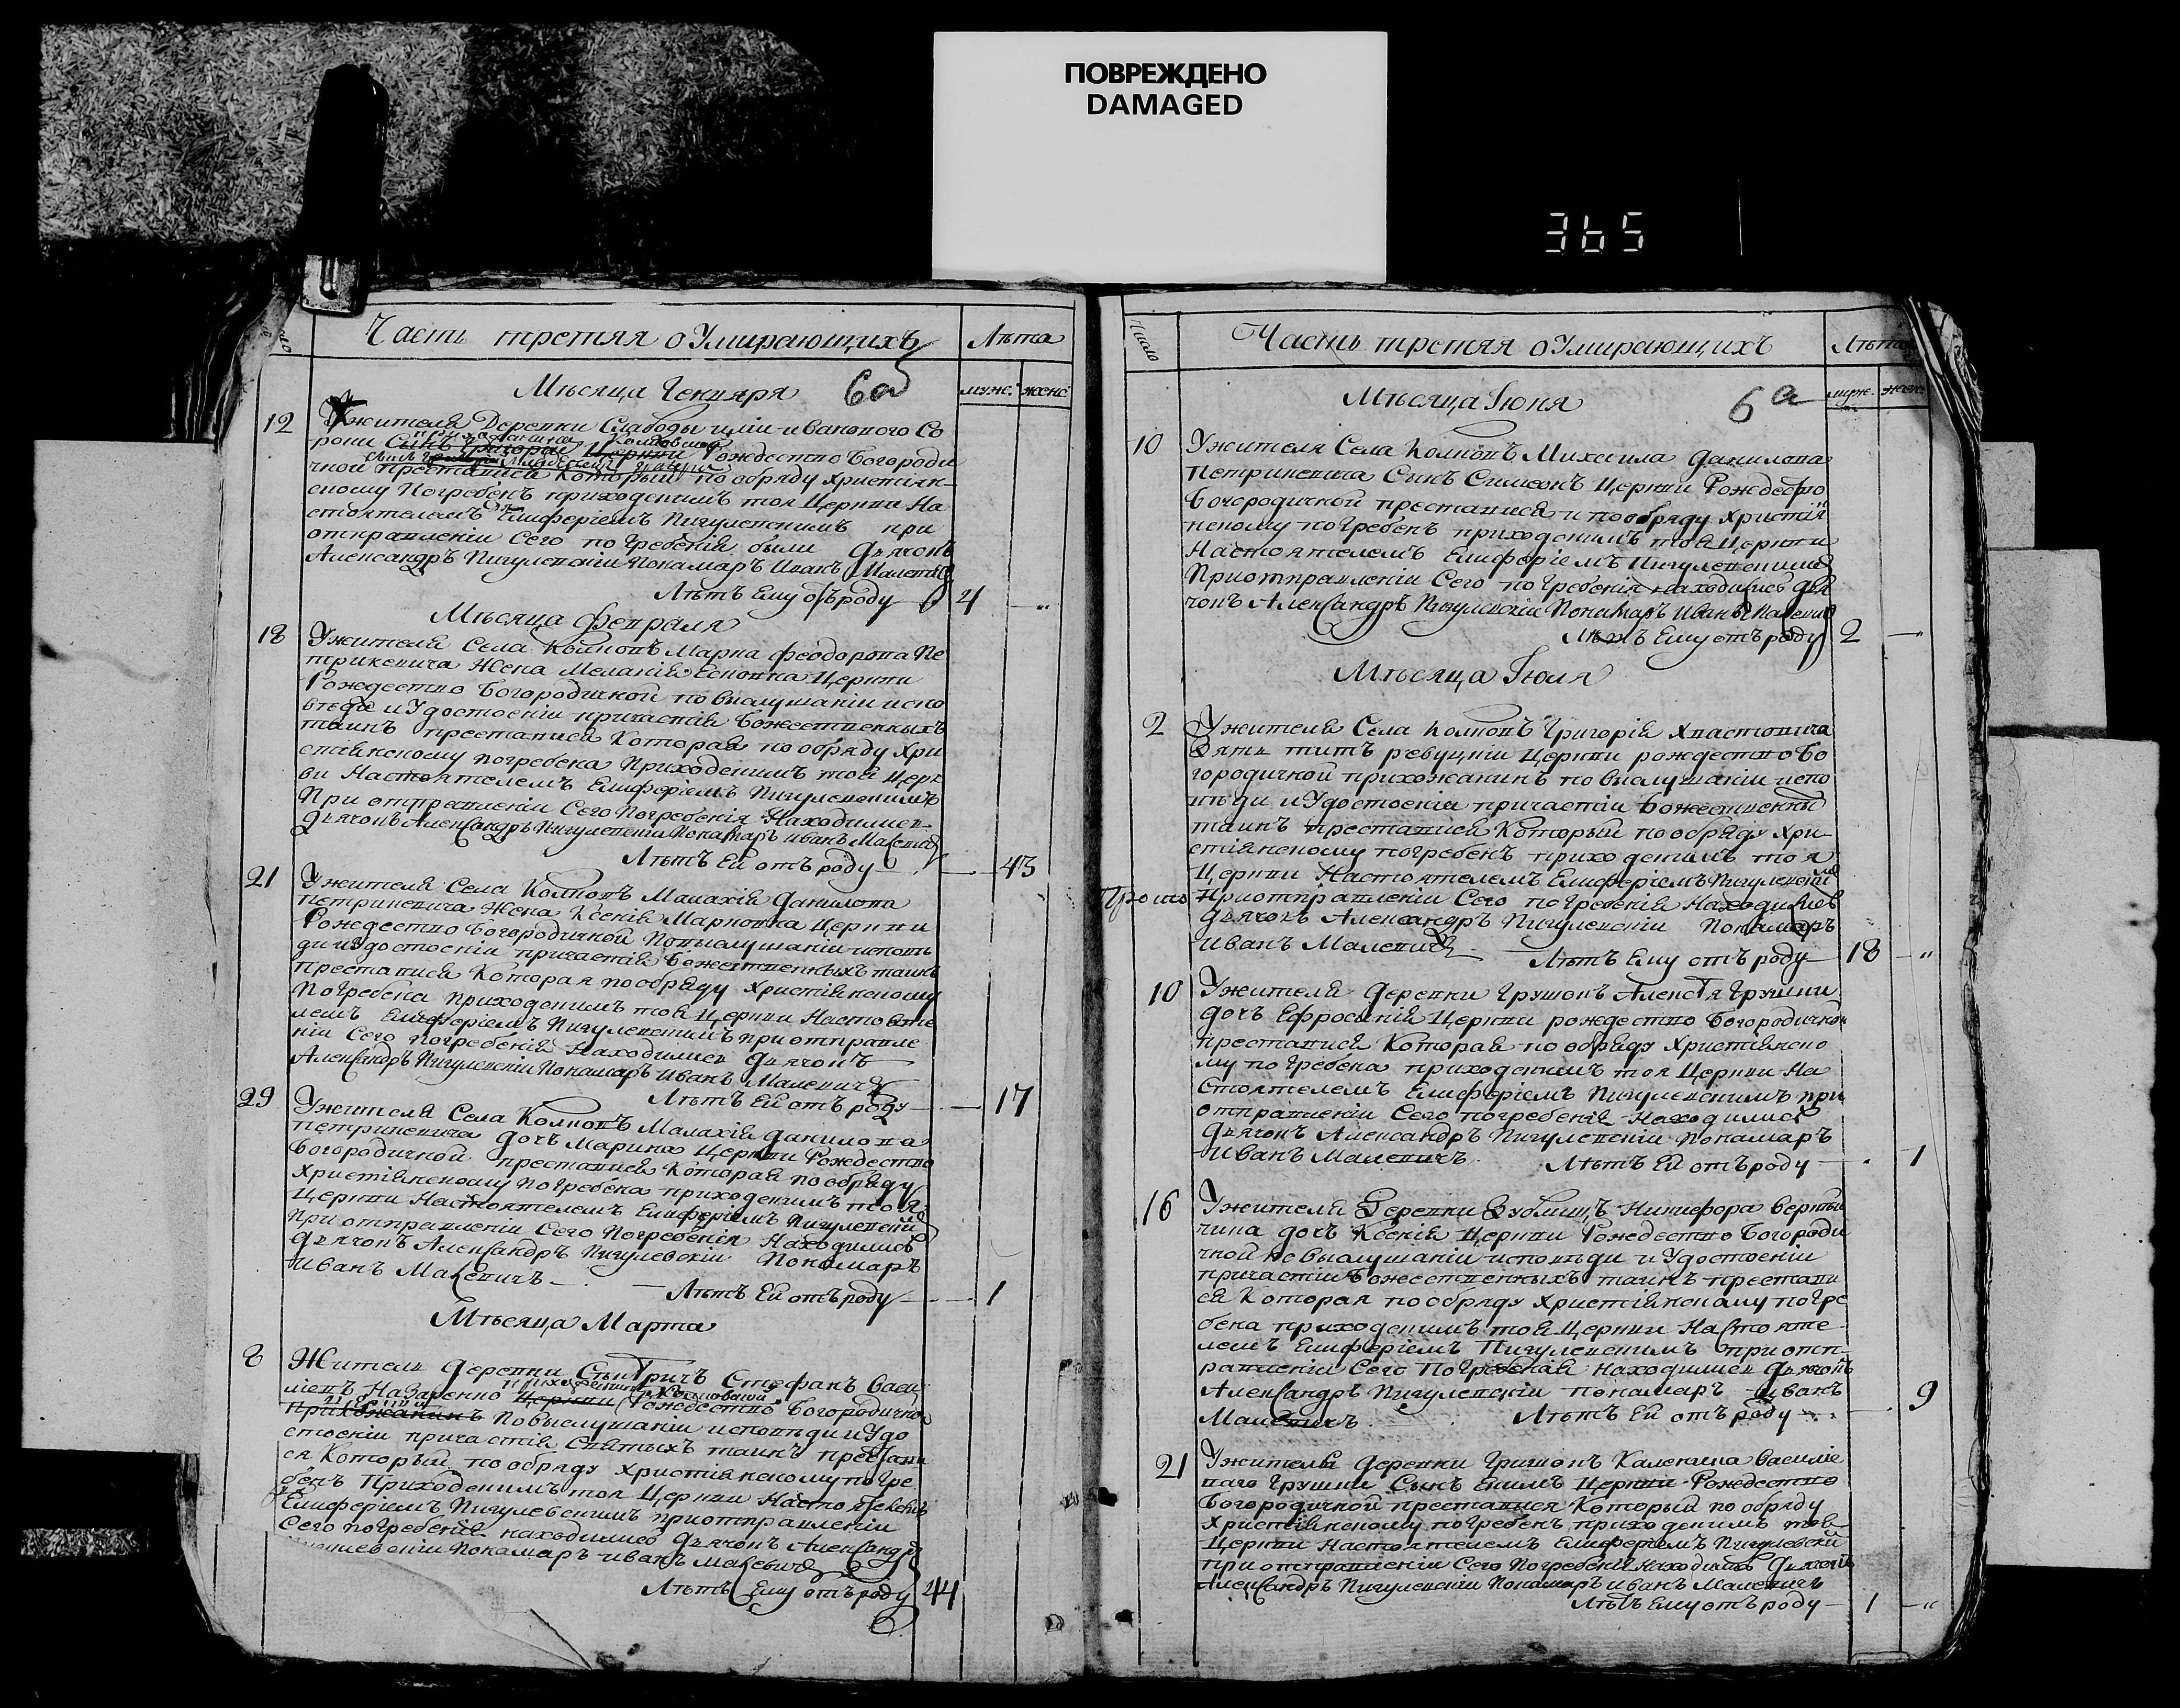 ПОВРЕЖДЕНО
DAMAGED
365
Число
Часть третяя о Умирающихъ
Лѣта
муж. женс
Мѣсяца Генваря
6а
12
Ужителя Деревни Слабоды или Ивановаго Со
чной преставися который по обряду христіян
скому погребенъ приходскимъ тоя Церкви На
стоятелемъ Елиферіемъ Пигулевскимъ при
отправленіи Сего погребенія были Дьячокъ
Александръ Пигулевскій Понамаръ Иванъ Малевичъ
Лѣтъ Ему отъ роду 4 "
Мѣсяца Февраля
18
Ужителя Села Колковъ Марка Феодорова Пе
трикевича Жена Меланія Церкви
Рождество Богородичной по выслушаніи испо
вѣди и Удостоеніи причастія Божественныхъ
таинъ преставися Которая по обряду Хри
стіянскому погребена Приходскимъ тоя Церк
ви Настоятелемъ Елиферіемъ Пигулевскимъ
При отправленіи Сего Погребенія Находились
Дьячокъ Александръ Пигулевскій Понамаръ Иванъ Малевичъ
Лѣтъ Ей отъ роду 43
21
Ужителя Села Колковъ Малахія Данилова
Петрикевича Жена Ксенія Маркова Церкви
Рождество Богородичной По выслушаніи исповѣ
ди и Удостоеніи причастія Божественныхъ таинъ
преставися Которая по обряду Христіянскому
Погребена приходскимъ тоя Церкви Настояте
лемъ Елиферіемъ Пигулевскимъ при отправле
ніи Сего погребенія Находились Дьячокъ
Александръ Пигулевскій Понамаръ Иванъ Малевичъ
Лѣтъ Ей отъ роду 17
29
Ужителя Села Колковъ Малахія Данилова
Петрикевича дочъ Марина Церкви Рождество
Богородичной преставися Которая по обряду
Христіянскому Погребена приходскимъ тоя
Церкви Настоятелемъ Елиферіемъ Пигулевскимъ
При отправленіи Сего Погребенія Находились
Дьячокъ Александръ Пигулевскій Понамаръ
Иванъ Малевичъ Лѣтъ Ей отъ роду 1
Мѣсяца Марта
8
Житель деревни Стефанъ Васи
левъ Назаренко Церкви Рождество Богородичной
прихожанинъ По выслушаніи исповѣди и Удо
стоеніи причастія Святыхъ таинъ престави
ся Который по обряду Христіянскому погре
бенъ Приходскимъ тоя Церкви Настоятелемъ
Елиферіемъ Пигулевскимъ при отправленіи
Сего погребенія находились Дьячокъ Александръ
Пигулевскій Понамаръ Иванъ Малевичъ
Лѣтъ Ему отъ роду 44
Число
Часть третяя о Умирающихъ
Лѣта
муж. женс
Мѣсяца Іюня
6а
10
Ужителя Села Колковъ Михаила Данилова
Петрикевича Сынъ Симеонъ Церкви Рождество
Богородичной преставися и по обряду Христія
нскому погребенъ приходскимъ тоя Церкви
Настоятелемъ Елиферіемъ Пигулевскимъ
При отправленіи Сего погребенія находились Дья
чокъ Александръ Пигулевскій Понамаръ Иванъ Малевичъ
Лѣтъ Ему отъ роду 2 "
Мѣсяца Іюля
2
Ужителя Села Колковъ Григорія Хвастовича
Зять титъ Церкви рождество Бо
городичной прихожанинъ по выслушаніи испо
вѣди и Удостоеніи причастіи Божественны
таинъ преставися Который по обряду Хри
стіянскому погребенъ приходскимъ тоя
Церкви Настоятелемъ Елиферіемъ Пигулевскимъ
При отправленіи Сего погребенія Находились
Дьячокъ Александръ Пигулевскій Понамаръ
Иванъ Малевичъ Лѣтъ Ему отъ роду 18 "
10
Ужителя деревни Грушокъ Алексѣя Грушки
дочъ Ефросинія Церкви рождество Богородичной
преставися Которая по обряду Христіянско
му погребена приходскимъ тоя Церкви На
стоятелемъ Елиферіемъ Пигулевскимъ при
отправленіи Сего погребенія Находились
Дьячокъ Александръ Пигулевскій Понамаръ
Иванъ Малевичъ Лѣтъ Ей отъ роду 1
16
Ужителя Деревни Никифора
дочъ Ксенія Церкви Рождество Богороди
чной по выслушаніи исповѣди и Удостоеніи
причастіи Божественныхъ таинъ престави
ся Которая по обряду Христіянскому погре
бена приходскимъ тоя Церкви Настояте
лемъ Елиферіемъ Пигулевскимъ при отп
равленіи Сего Погребенія находились Дьячокъ
Александръ Пигулевскій понамаръ Иванъ
Малевичъ Лѣтъ Ей отъ роду 9
21
Ужителя деревни Грушокъ
Грушки Сынъ Церкви Рождество
Богородичной преставися Который по обряду
Христіянскому погребенъ приходскимъ тоя
Церкви Настоятелемъ Елиферіемъ Пигулевскимъ
при отправленіи Сего Погребенія Находились Дьячокъ
Александръ Пигулевскій Понамаръ Иванъ Малевичъ
Лѣтъ Ему отъ роду 1 "